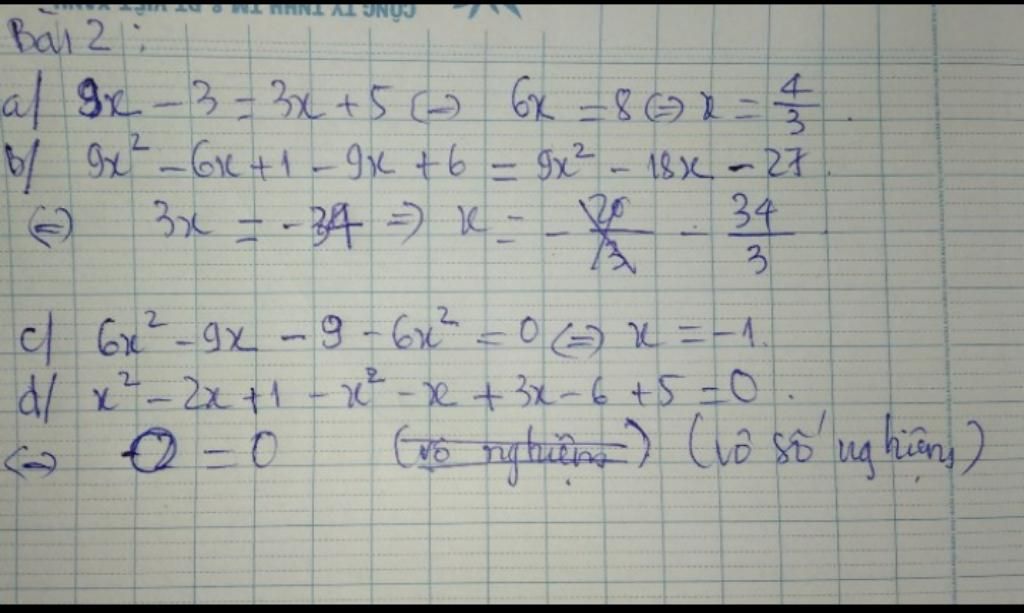 Bài 2 :
a/ 9x - 3 = 3x + 5 (=) 6x = 8 (=) x = 4/3 .
b/ 9x² - 6x + 1 - 9x + 6 = 9x² - 18x - 27.
(=) 3x = -34 => x = - 34/3
c/ 6x² - 9x - 9 - 6x² = 0 (=) x = -1.
d/ x² - 2x + 1 - x² - x + 3x - 6 + 5 = 0 .
(=) 0 = 0 (vô nghiệm) (vô số nghiệm)